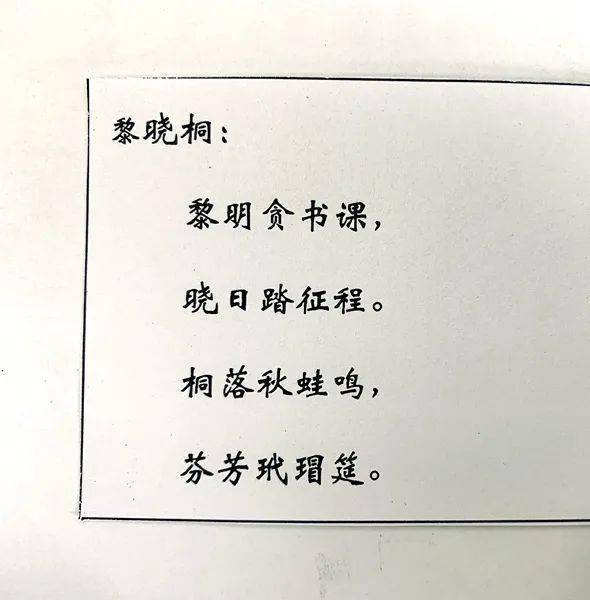 黎晓桐：
黎明贪书课，
晓日踏征程。
桐落秋蛙鸣，
芬芳玳瑁筵。